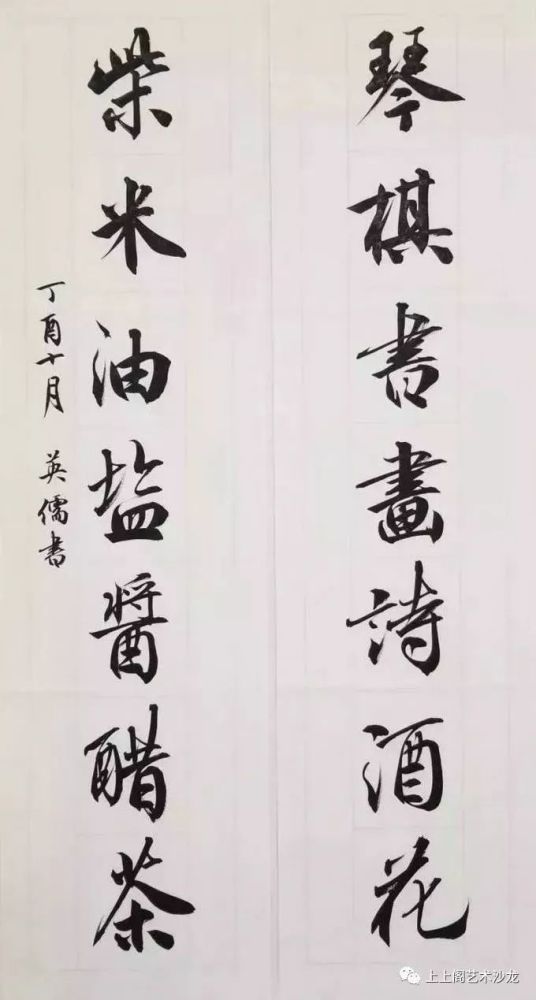 琴棋書畫詩酒花
柴米油塩醬醋茶
丁酉十月 英儒書
上上阁艺术沙龙